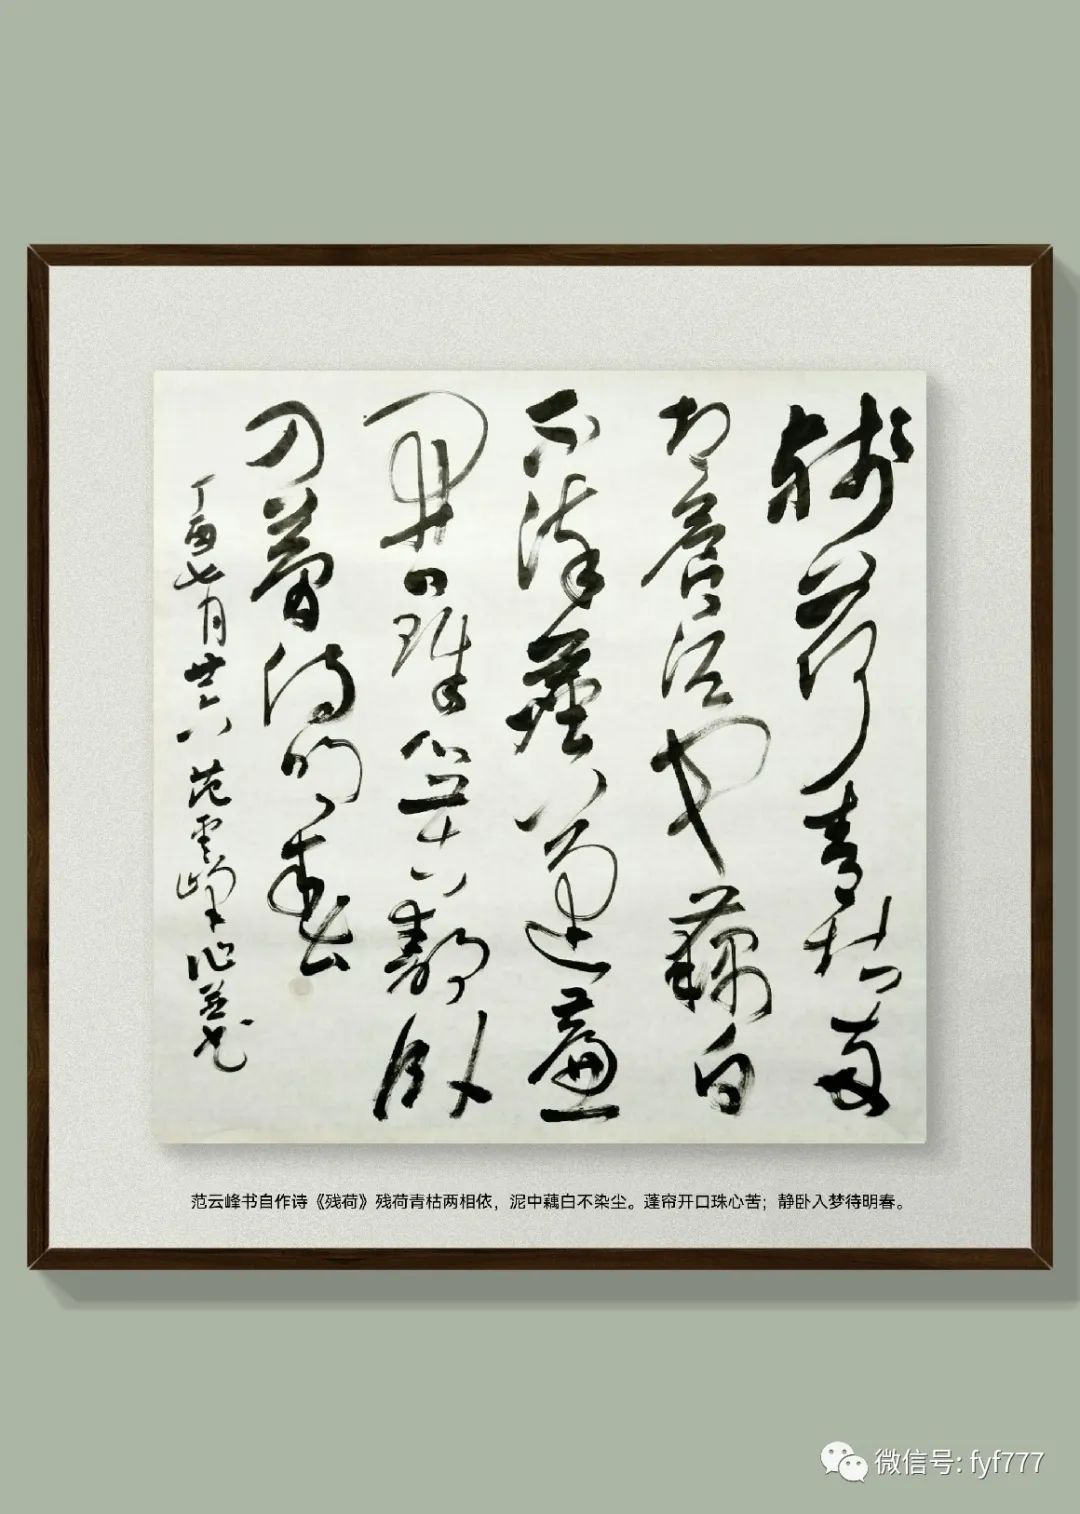 残荷青枯两
相泥中藕白
不染塵蓬簾
開口珠心苦静卧
入夢待明春
丁酉七月廿六范雲峰作并书
范云峰书自作诗《残荷》残荷青枯两相依，泥中藕白不染尘。蓬帘开口珠心苦；静卧入梦待明春。
微信号: fyf777